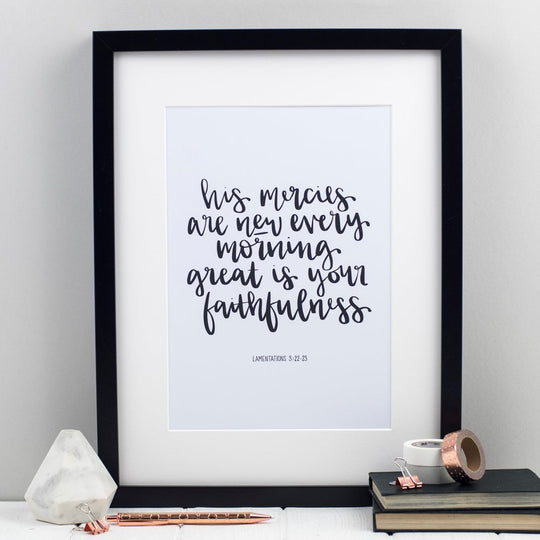 his mercies
are new every
morning
great is your
faithfulness
LAMENTATIONS 3:22-23